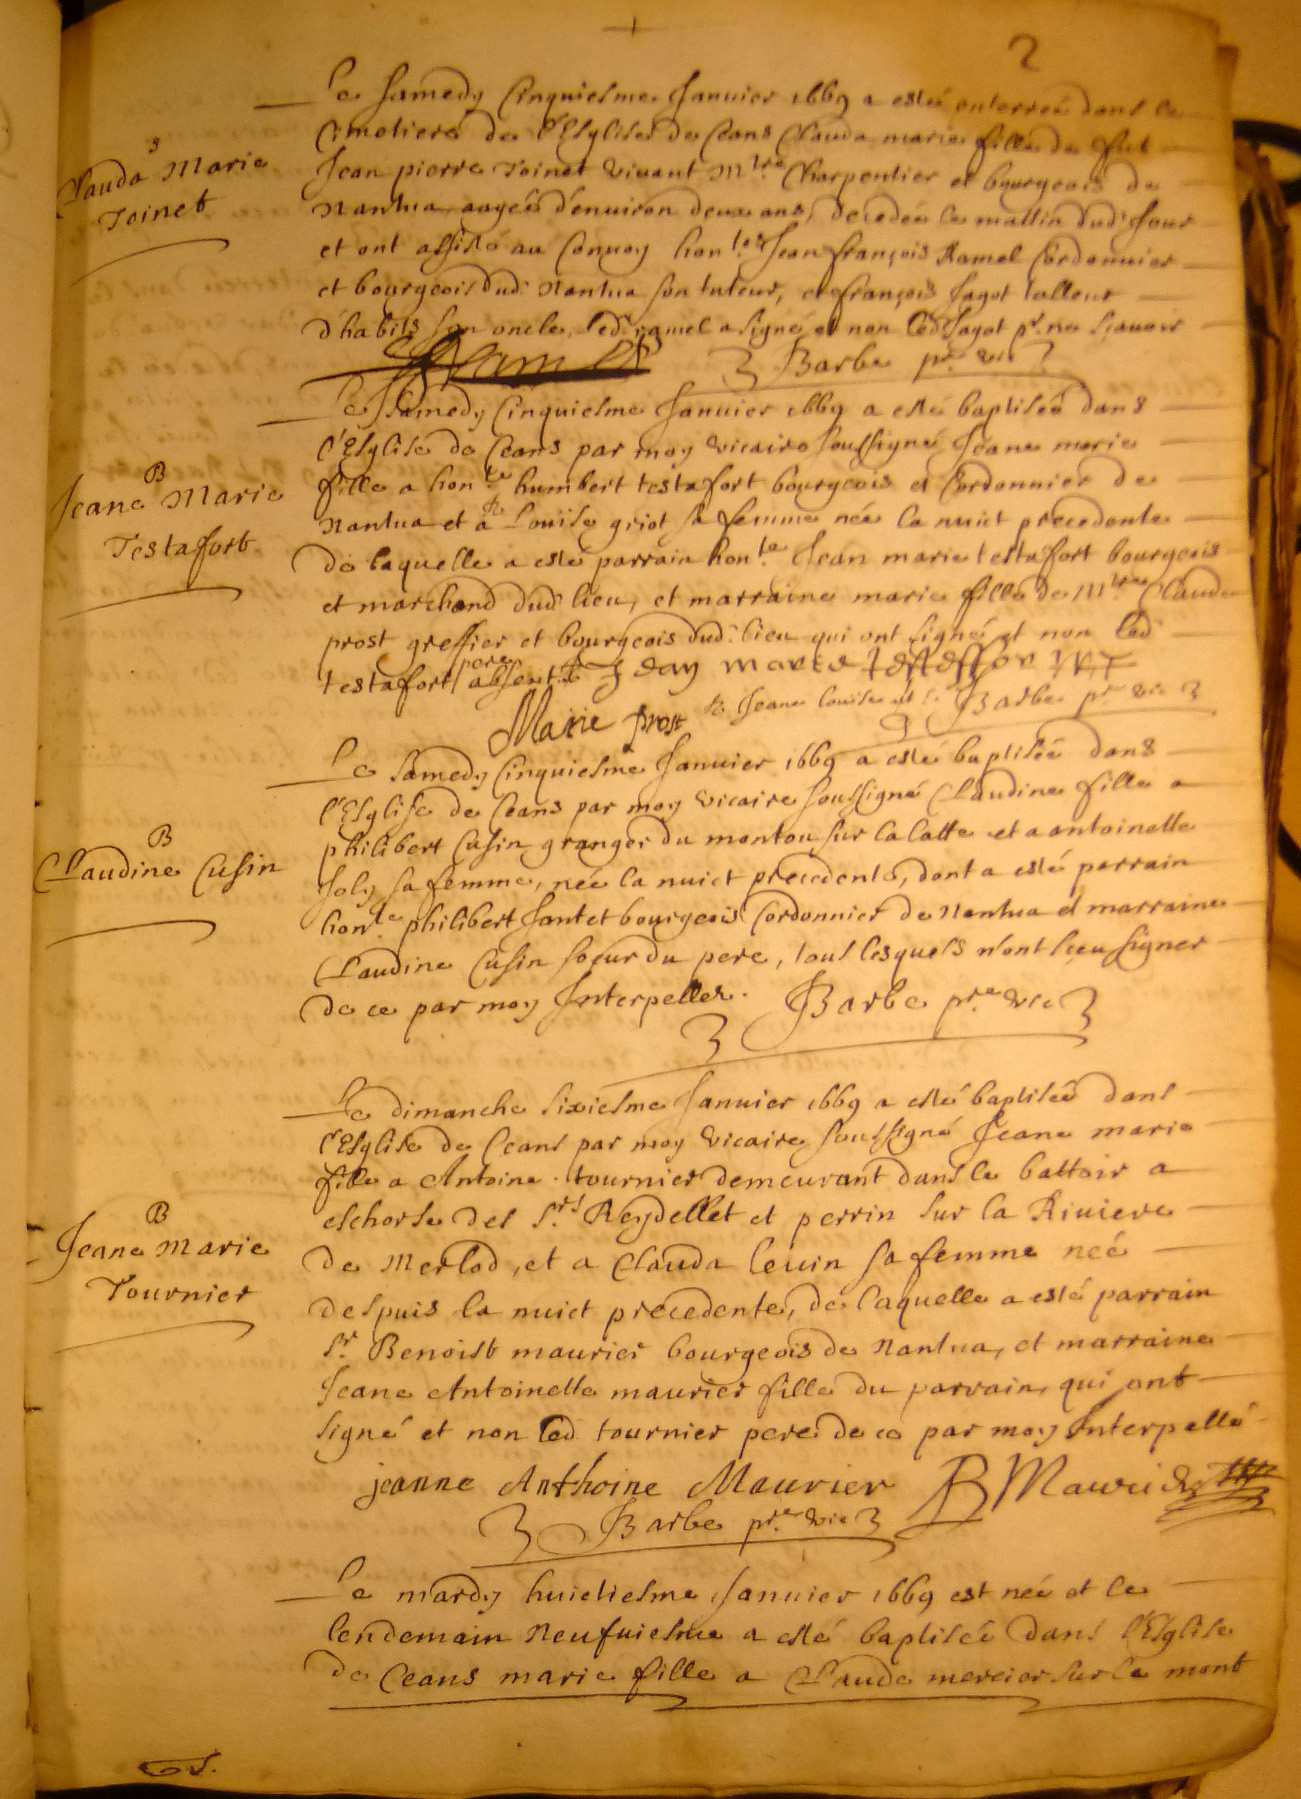 2
Le samedy cinquiesme Januier 1669 a esté enterreé dans le
Cimetiere de l'Esglise de Ceans Clauda marie fille de fut
s
Clauda Marie
Toinet
Jean pierre Toinet viuant M.tre Charpentier et bourgeois de
Nantua aageé denuiron deux ans, decedeé le mattin dud. Jour
et ont assisté au Conuoy hon.tes Jean françois Ramel Cordonnier
et bourgeois dud. Nantua son tuteur, et françois Jagot talleur
d'habits son oncle, led. ramel a signé et non led Jagot p.r ne sçauoir
Ramel Barbe p.re vic
Le Samedy Cinquiesme Januier 1669 a esté baptiseé dans
l'Esglise de Ceans par moy vicaire soussigné Jeane marie
B
Jeane Marie
Testafort
fille a hon.te humbert testafort bourgeois et Cordonnier de
Nantua et a Louise griot sa femme neé la nuict precedente
de laquelle a esté parrain hon.te Jean marie testafort bourgeois
et marchand dud lieu, et marraine marie fille de M.tre Claude
prost greffier et bourgeois dud. lieu qui ont signé et non led
testafort pere absent
Marie prost Jeane louise Barbe p.re vic
Le Samedy Cinquiesme Januier 1669 a esté baptiseé dans
l'Esglise de Ceans par moy vicaire soussigné Claudine fille a
B
Claudine Cusin
philibert Cusin granger du montou sur la latte et a antoinette
Joly sa femme, neé la nuict precedente, dont a esté parrain
hon.te philibert Jantet bourgeois Cordonnier de Nantua et marraine
Claudine Cusin soeur du pere, tous lesquels n'ont sceu signer
de ce par moy Interpellez. Barbe p.re vic
Le dimanche sixiesme Januier 1669 a esté baptiseé dans
l'Esglise de Ceans par moy vicaire soussigné Jeane marie
fille a Antoine tournier demeurant dans le battoir a
B
Jeane Marie
Tournier
eschorse des S.rs Reydellet et perrin sur la Riuiere
de Merlod, et a Clauda leuin sa femme neé
despuis la nuict precedente, de laquelle a esté parrain
S.r Benoist maurier bourgeois de Nantua, et marraine
Jeane Antoinette maurier fille du parrain, qui ont
signé et non led tournier pere de ce par moy Interpellé
jeanne Anthoine Maurier B Maurier
Barbe p.re vic
Le mardy huictiesme Januier 1669 est neé et le
lendemain Neufuiesme a esté baptiseé dans l'Esglise
de Ceans marie fille a Claude mercier sur le mont